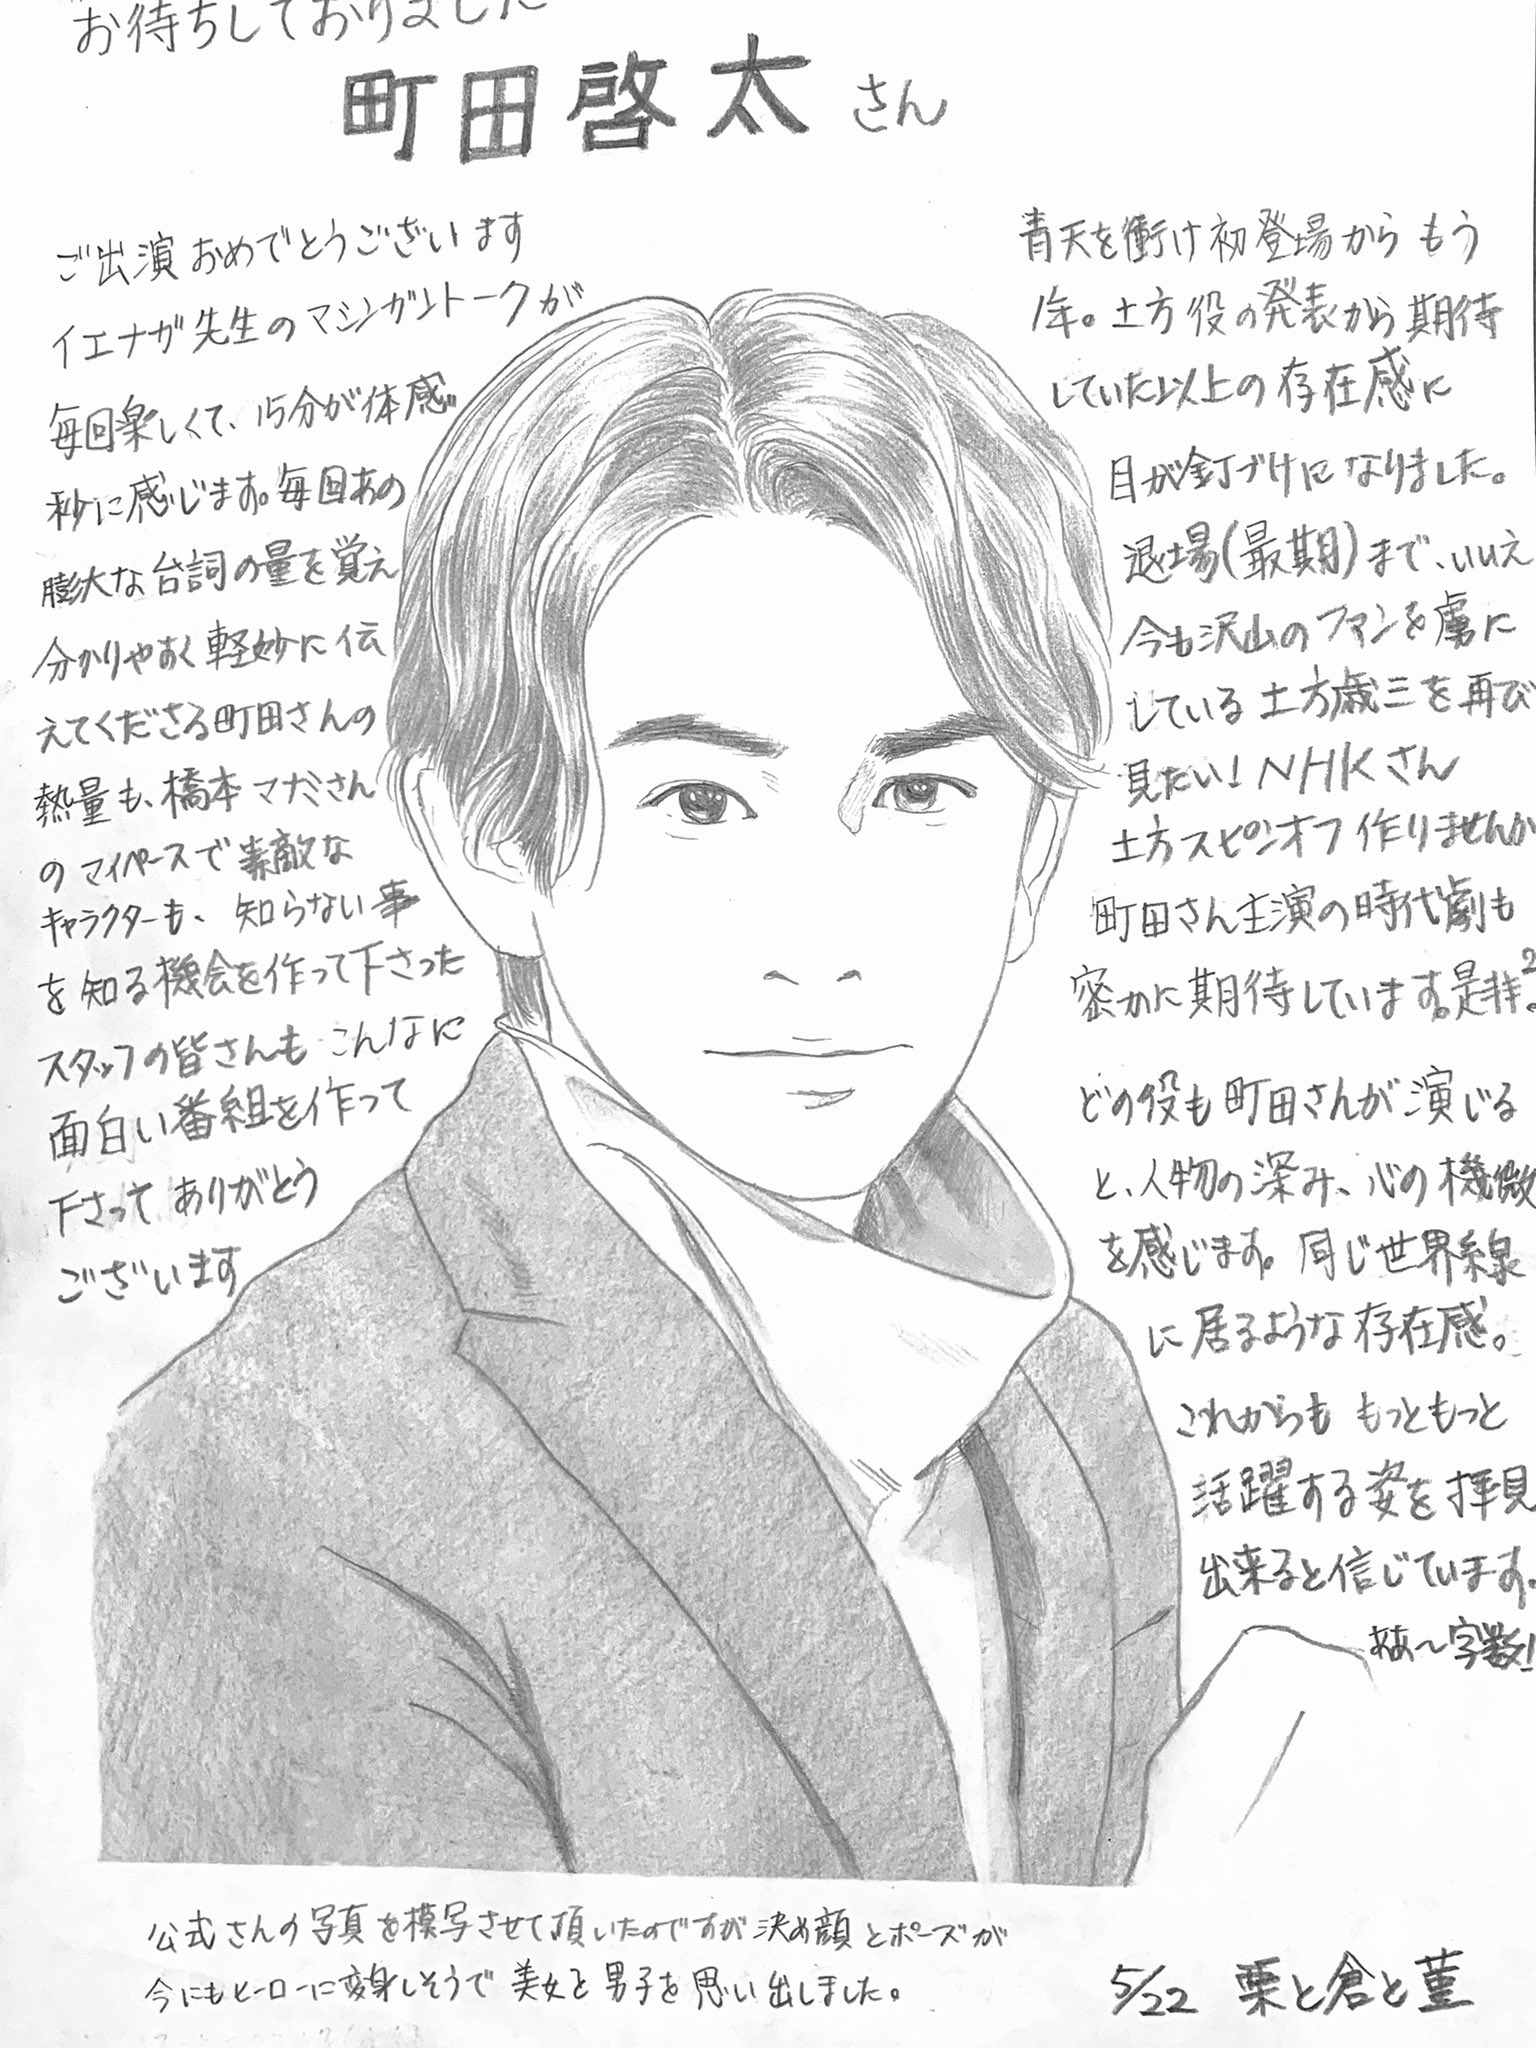 お待ちしておりました
町田啓太さん
ご出演おめでとうございます
イエナガ先生のマシンガントークが
毎回楽しくて、15分が体感
秒に感じます。毎回あの
膨大な台詞の量を覚え
分かりやすく軽妙に伝
えてくださる町田さんの
熱量も、橋本マナミさん
のマイペースで素敵な
キャラクターも、知らない事
を知る機会を作って下さった
スタッフの皆さんもこんなに
面白い番組を作って
下さってありがとう
ございます
青天を衝け初登場からもう
1年。土方役の発表から期待
していた以上の存在感に
目が釘づけになりました。
退場(最期)まで、いいえ
今も沢山のファンを虜に
している土方歳三を再び
見たい!NHKさん
土方スピンオフ作りませんか
町田さん主演の時代劇も
密かに期待しています。是非2。
どの役も町田さんが演じる
と、人物の深み、心の機微
を感じます。同じ世界線
に居るような存在感。
これからももっともっと
活躍する姿を拝見
出来ると信じています。
ああ〜字数!
公式さんの写真を模写させて頂いたのですが決め顔とポーズが
今にもヒーローに変身しそうで美女と男子を思い出しました。
5/22 栗と倉と菫